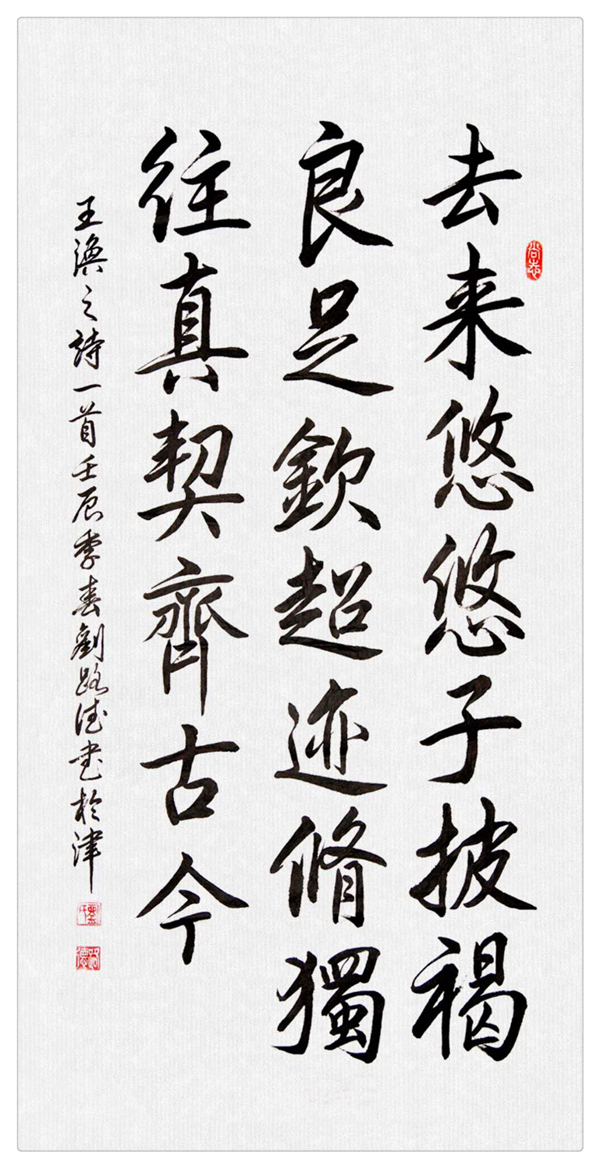 去来悠悠子披褐
良足欽超迹脩獨
往真契齊古今
王渙之詩一首壬辰季春劉路德书於津